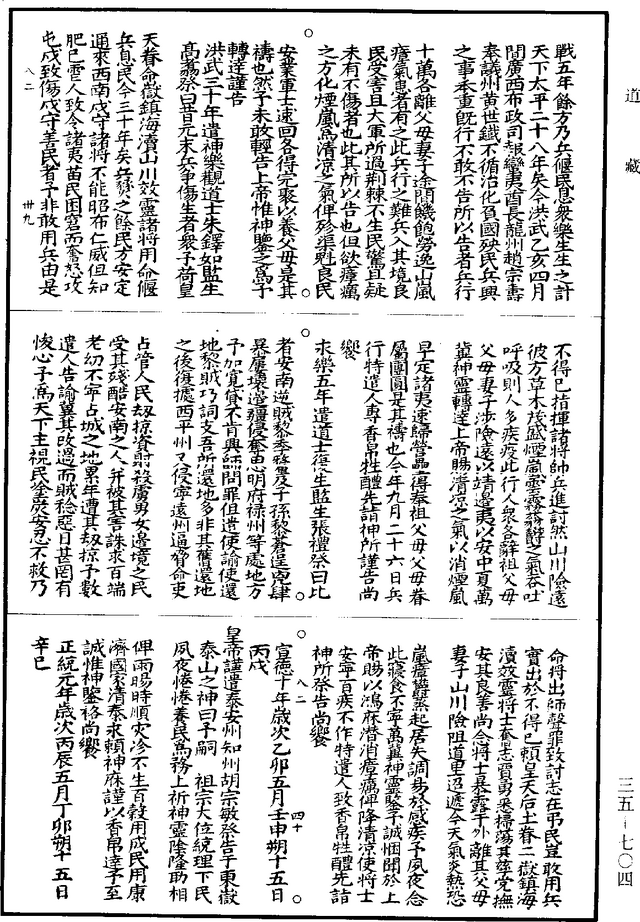 道藏
戰五年餘方乃兵偃民息衆樂生生之計
天下太平二十八年矣今洪武乙亥四月
間廣西布政司報蠻夷酋長龍州趙宗壽
奉議州黃世鐵不循治化負國殃民兵興
之事奉重旣行不敢不告所以告者兵行
十萬各離父母妻子途間饑飽勞逸山嵐
瘴氣患者有之此兵行之難兵入其境良
民受害且大軍所過荆棘不生民驚且疑
未有不傷者也此其所以告也但欲瘴癘
之方化煙嵐爲清凉之氣俾殄渠魁良民
安業軍士速回各得完聚以養父母是其
禱也然予未敢輕告上帝惟神鑒之爲予
轉達謹告
洪武三十年遣神樂觀道士朱鐸如監生
高翥祭曰昔元末兵爭傷生者衆予荷皇
天眷命嶽鎮海瀆山川效靈諸將用命偃
兵息民今三十年矣兵燹之餘民方安定
通來西南戍守諸將不能昭布仁威但知
肥己虐人致令諸夷苗民困窘而奮怒攻
屯戍致傷戍守善民者予非敢用兵由是
八二
卅九
不得已指揮諸將帥兵進討然山川險遠
彼方草木茂盛煙嵐雲霧蓊鬱之氣吞吐
呼吸則人多疾疫此行人衆各辭祖父母
父母妻子涉險遠以靖邊夷以安中夏萬
冀神靈轉達上帝賜清凉之氣以消煙嵐
早定諸夷速歸營壘得奉祖父母父母眷
屬團圓是其禱也今年九月二十六日兵
行特遣人專香帛牲醴先詣神所謹告尚
饗
永樂五年遣道士復生監生張禮祭曰比
者安南逆賊黎季犛及子孫黎蒼逞兇肆
暴屢壞邊疆侵奪思明府祿州等處地方
予加寬貸不肯興師問罪但遣使諭使還
地黎賊巧詞支吾所還地多非其舊還地
之後復據西平州又侵寧遠州逼脅命吏
占管人民刼掠資財殺虜男女邊境之民
受其殘酷安南之人并被其害誅求百端
老幼不寧占城之地累年遭其刼掠予數
遣人告諭冀其改過而賊稔惡日甚罔有
悛心予爲天下主視民塗炭安忍不救乃
命將出師聲罪致討志在弔民豈敢用兵
實出於不得已賴皇天后土眷二嶽鎮海
瀆效靈將士奮志賈勇悉掃蕩其兹兇撫
安其良善尚念將士暴露于外離其父母
妻子山川險阻道里迢遞今天氣炎熱恐
嵐瘴蠻蒸起居失調易於感疾予夙夜念
此寢食不寧萬冀神靈鑒予誠悃聞於上
帝賜以鴻庥潛消瘴癘俾降清凉使將士
安寧百疾不作特遣人致香帛牲醴先詣
神所祭告尚饗
八二
四十
宣德十年歲次乙卯五月壬申朔十五日
丙戌
皇帝謹遣泰安州知州胡宗敏祭告于東嶽
泰山之神曰予嗣　祖宗大位統理下民
夙夜惓惓養民爲務上祈神靈陰隆助相
俾雨暘時順灾沴不生百穀用成民用康
濟國家清泰永賴神庥謹以香帛達予至
誠惟神鑒格尚饗
正統元年歲次丙辰五月丁卯朔十五日
辛巳
三五－七〇四